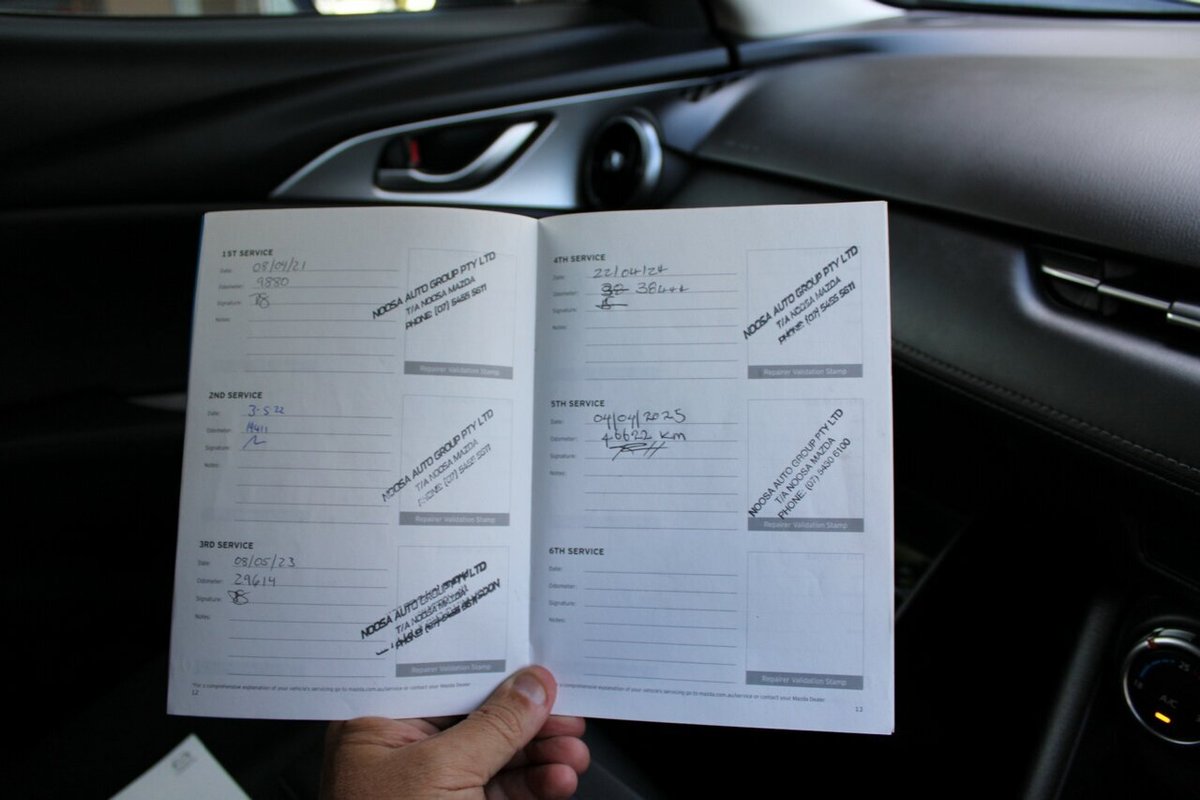 1ST SERVICE
Date: 08/04/21
Odometer: 9880
Signature:
Notes:
NOOSA AUTO GROUP PTY LTD
T/A NOOSA MAZDA
PHONE: (07) 5455 5611
Repairer Validation Stamp
2ND SERVICE
Date: 3-5 22
Odometer:
Signature:
Notes:
NOOSA AUTO GROUP PTY LTD
T/A NOOSA MAZDA
PHONE: (07) 5455 5611
Repairer Validation Stamp
3RD SERVICE
Date: 08/05/23
Odometer: 29614
Signature:
Notes:
NOOSA AUTO GROUP PTY LTD
T/A NOOSA MAZDA
Repairer Validation Stamp
*For a comprehensive explanation of your vehicle's servicing go to mazda.com.au/service or contact your Mazda Dealer
12
4TH SERVICE
Date: 22/04/24
Odometer: 38444
Signature:
Notes:
NOOSA AUTO GROUP PTY LTD
T/A NOOSA MAZDA
PHONE: (07) 5455 5611
Repairer Validation Stamp
5TH SERVICE
Date: 04/04/2025
Odometer: 46622 km
Signature:
Notes:
NOOSA AUTO GROUP PTY LTD
T/A NOOSA MAZDA
PHONE: (07) 5430 6100
Repairer Validation Stamp
6TH SERVICE
Date:
Odometer:
Signature:
Notes:
Repairer Validation Stamp
a comprehensive explanation of your vehicle's servicing go to mazda.com.au/service or contact your Mazda Dealer
13
A/C